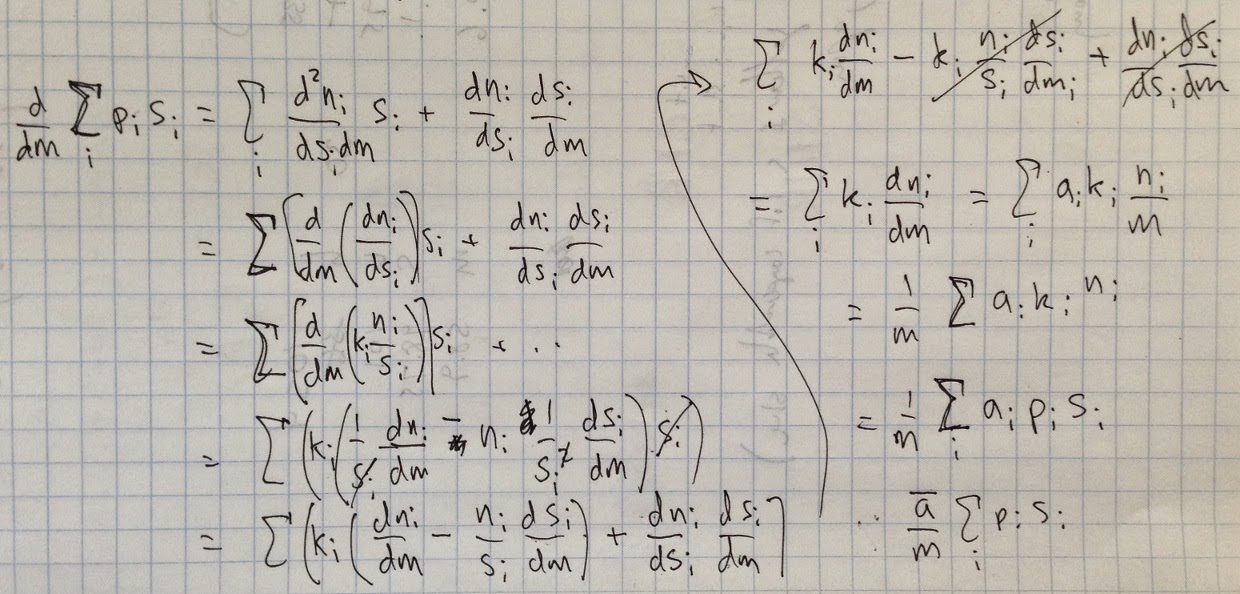 d/dm Σ_i p_i s_i = Σ_i d²n_i/ds_i dm s_i + dn_i/ds_i ds_i/dm
= Σ [d/dm (dn_i/ds_i)] s_i + dn_i/ds_i ds_i/dm
= Σ [d/dm (k_i n_i/s_i)] s_i + ..
= Σ (k_i (1/s_i dn_i/dm - n_i 1/s_i² ds_i/dm) s_i)
= Σ (k_i (dn_i/dm - n_i/s_i ds_i/dm) + dn_i/ds_i ds_i/dm)
Σ_i k_i dn_i/dm - k_i n_i/s_i ds_i/dm_i + dn_i/ds_i ds_i/dm
= Σ_i k_i dn_i/dm = Σ_i a_i k_i n_i/m
= 1/m Σ a_i k_i n_i
= 1/m Σ_i a_i p_i s_i
.. a̅/m Σ_i p_i s_i